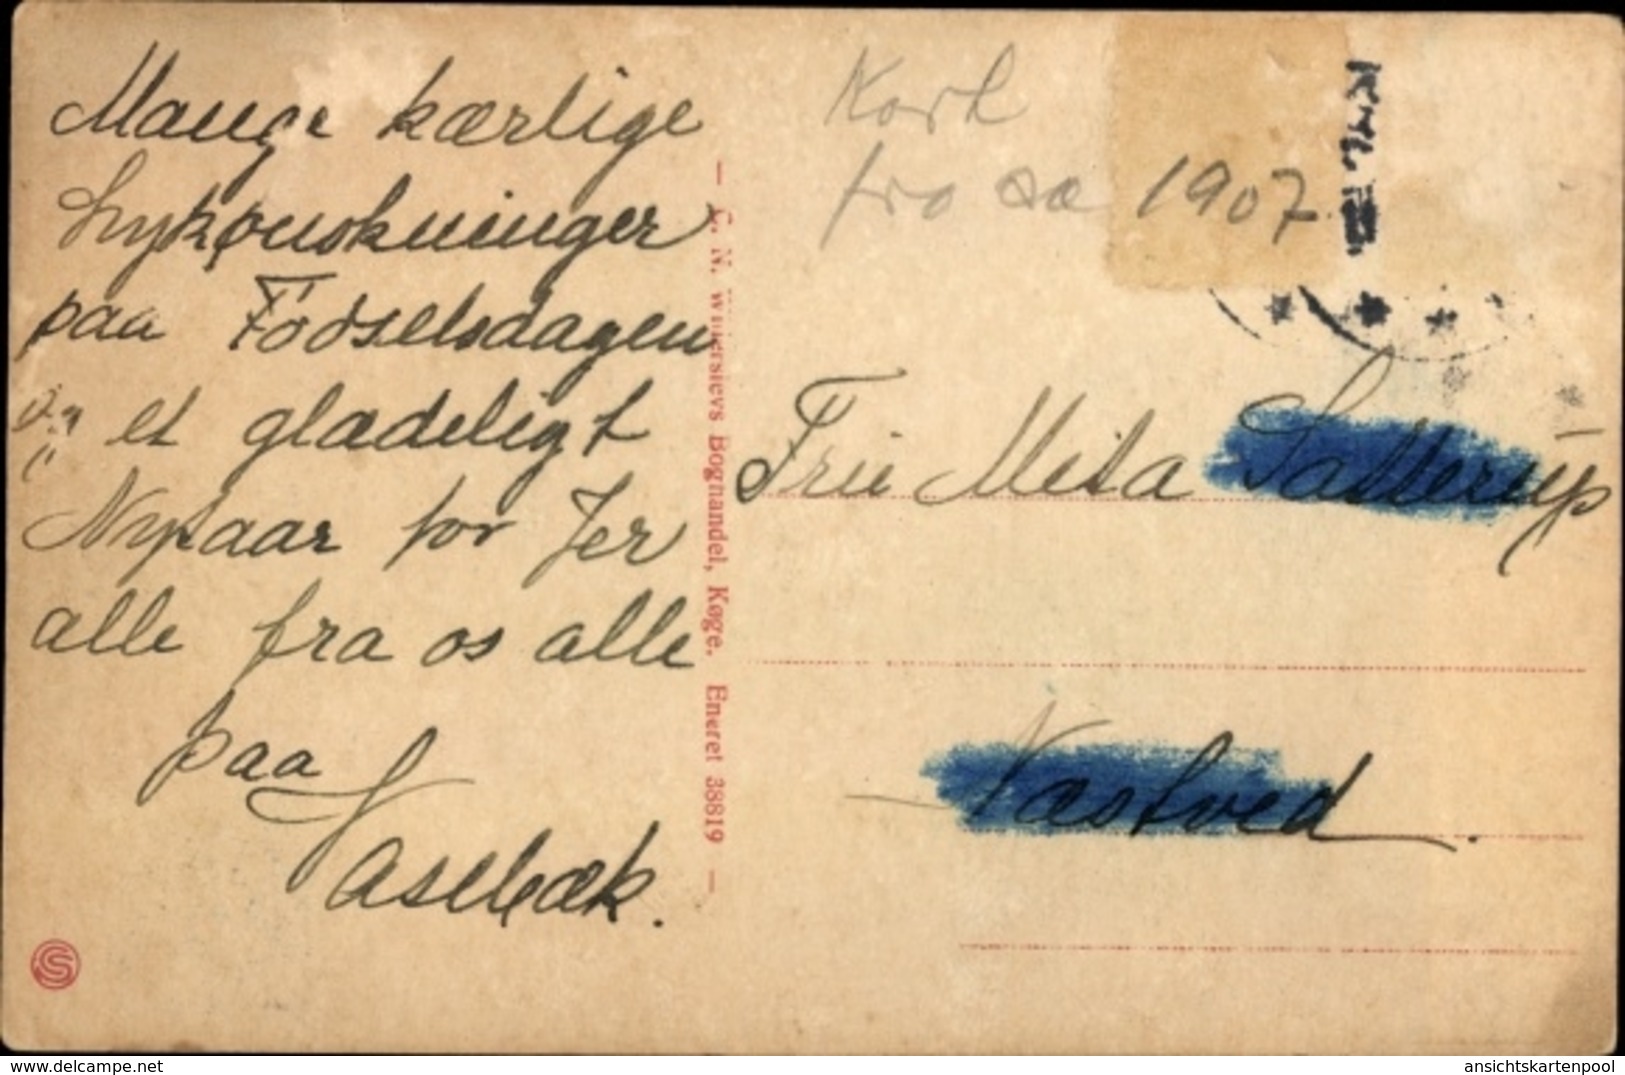 Mange kærlige
Lykønskninger
paa Fødselsdagen
og et glædeligt
Nytaar for Jer
alle fra os alle
paa
Vaselbæk.
— C. N. Wintersievs Boghandel, Køge. Eneret 38819 —
Kort
fra ca 1907
Fru Meta Satterup
Næstved.
akpool.de
ansichtskartenpool